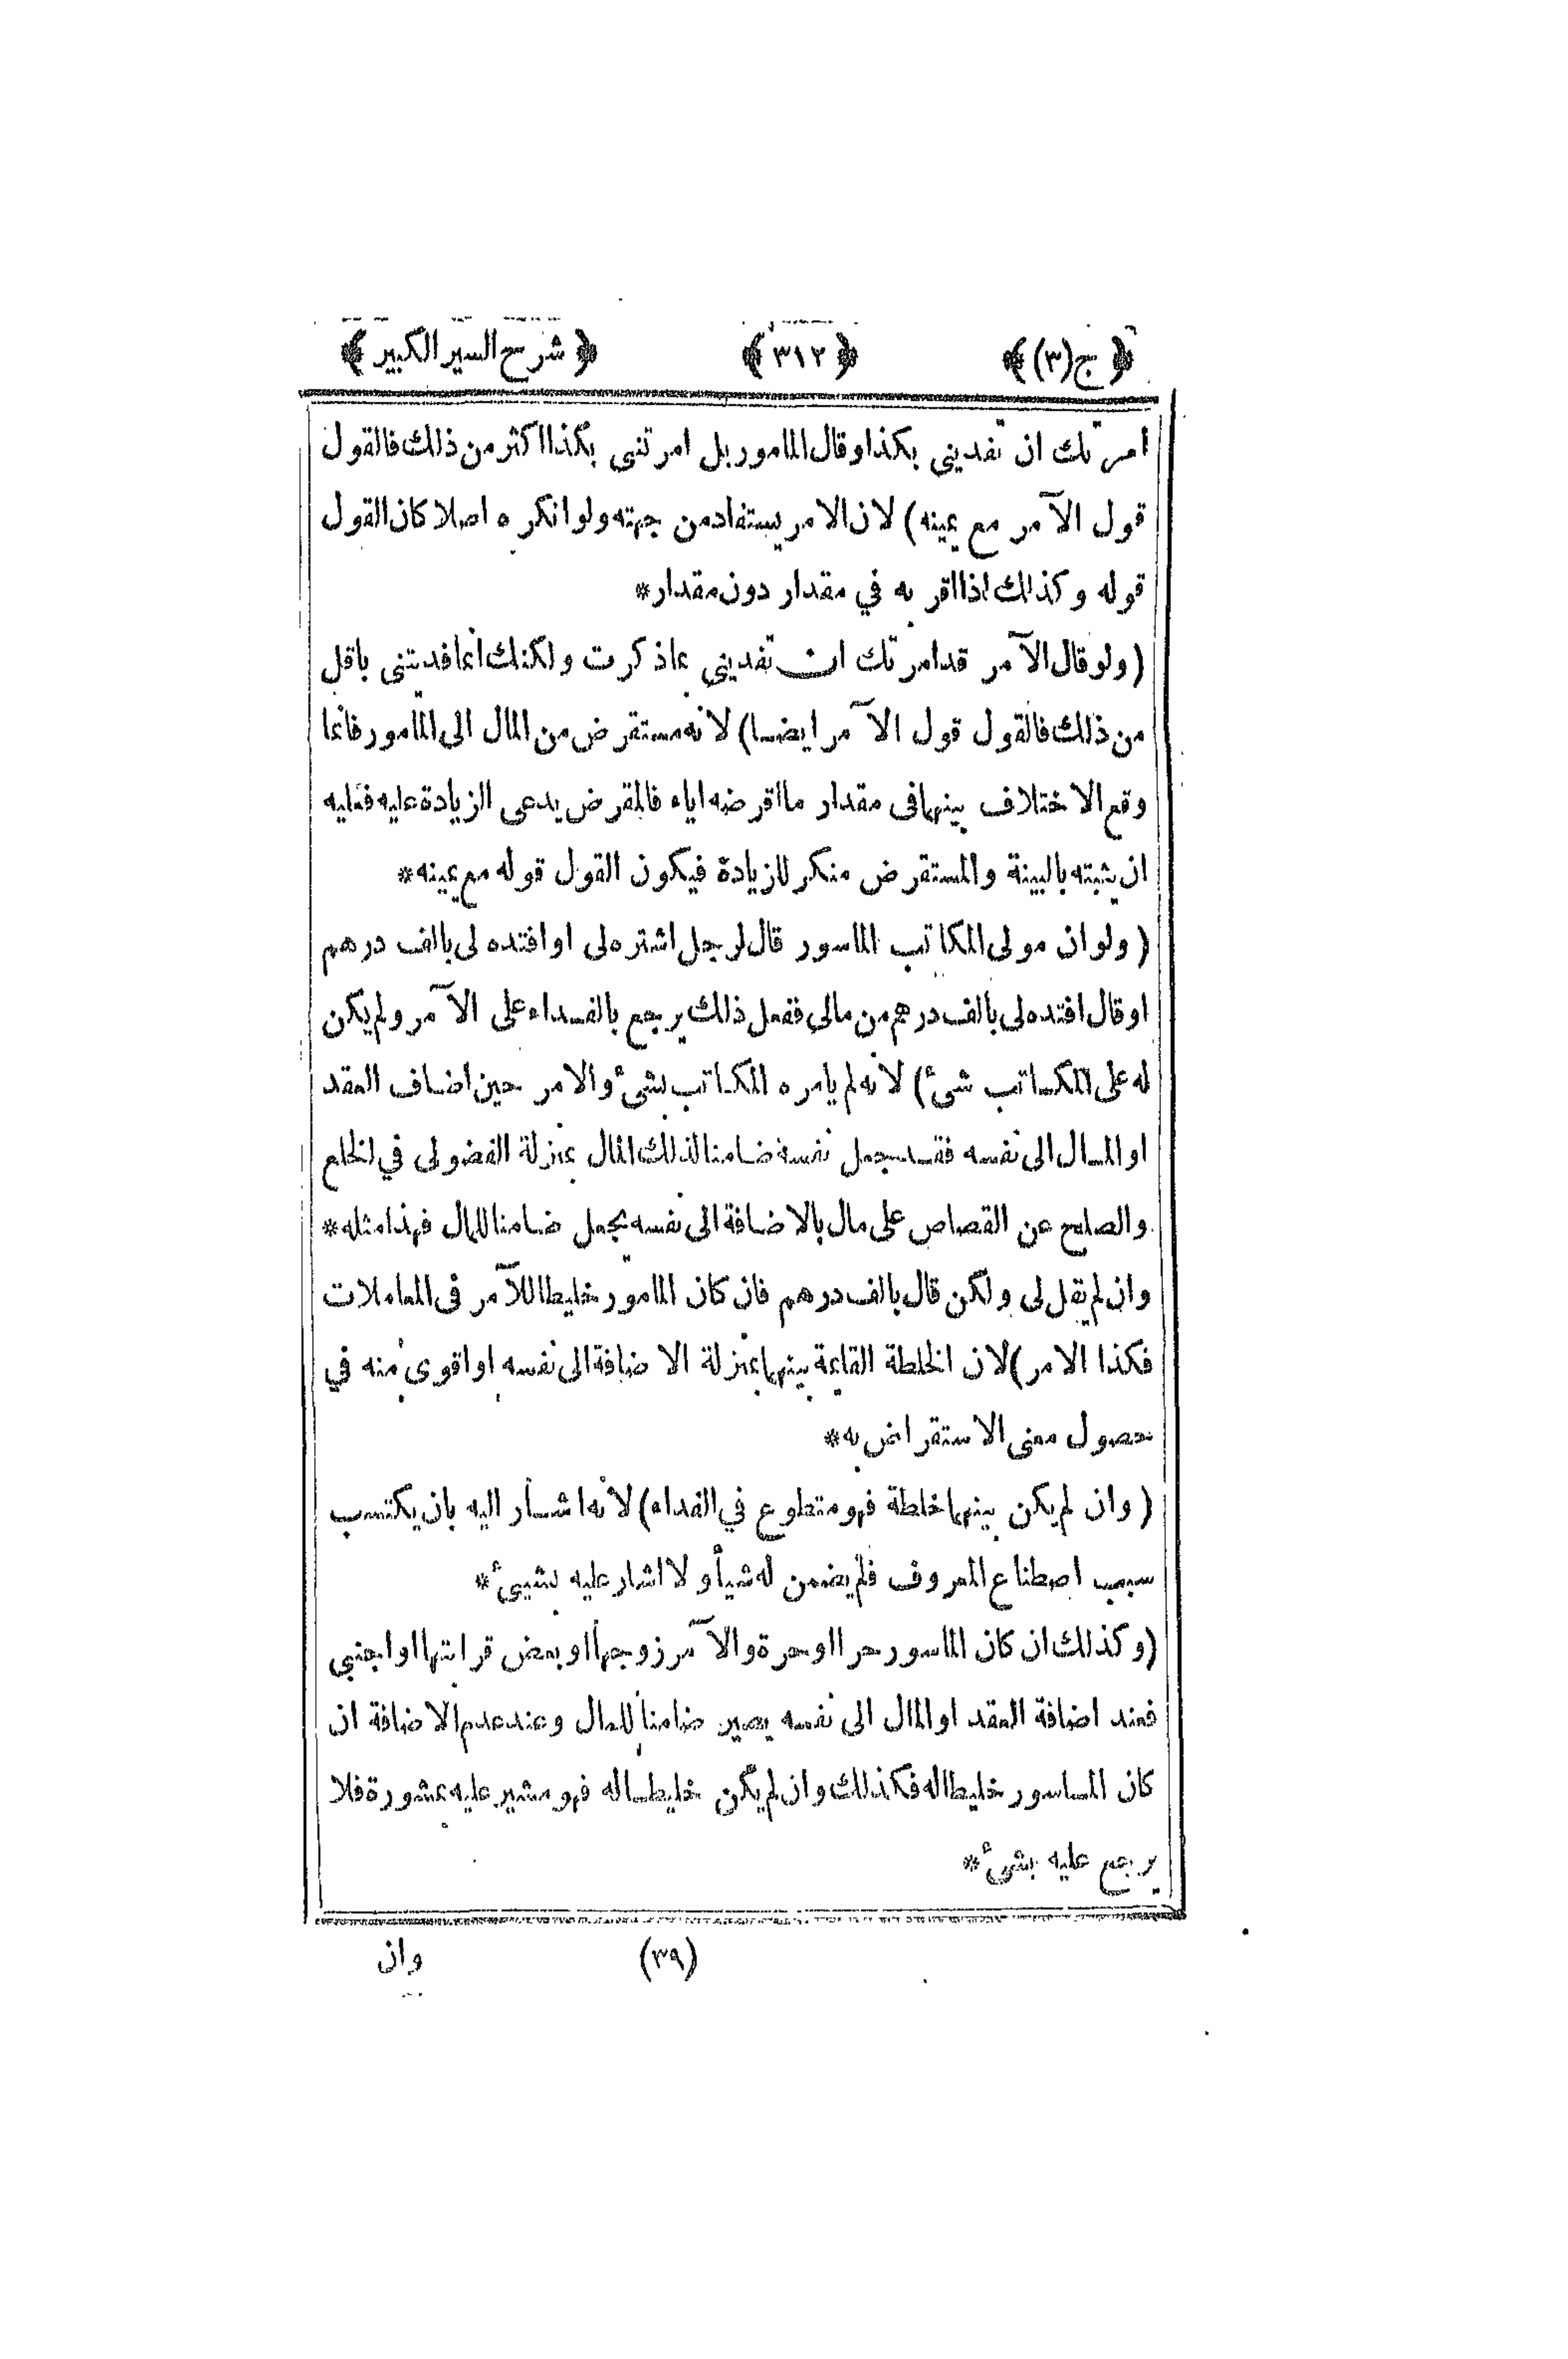 ﴿ ج(٣) ﴾ ﴿ ٣١٢ ﴾ ﴿ شرح السير الكبير ﴾
امرتك ان تفديني بكذا وقال المامور بل امرتنى بكذا اكثر من ذلك فالقول
قول الآمر مع يمينه) لان الامر يستفاد من جهته ولو انكره اصلا كان القول
قوله وكذلك اذا اقر به في مقدار دون مقدار*
(ولو قال الآمر قد امرتك ان تفديني بما ذكرت ولكنك انما فديتنى باقل
من ذلك فالقول قول الآمر ايضا) لانه مستقرض من المال الى المامور فانما
وقع الاختلاف بينهما فى مقدار ما اقرضه اياه فالمقرض يدعى الزيادة عليه فعليه
ان يثبته بالبينة والمستقرض منكر للزيادة فيكون القول قوله مع يمينه*
(ولو ان مولى المكاتب الماسور قال لرجل اشتره لى او افتده لى بالف درهم
او قال افتده لى بالف درهم من مالى ففعل ذلك يرجع بالفداء على الآمر ولم يكن
له على المكاتب شئ) لانه لم يامره المكاتب بشئ والامر حين اضاف العقد
او المال الى نفسه فقد جعل نفسه ضامنا لذلك المال بمنزلة الفضولى في الخلع
والصلح عن القصاص على مال بالاضافة الى نفسه يجعل ضامنا للمال فهذا مثله*
وان لم يقل لى ولكن قال بالف درهم فان كان المامور خليطا للآمر فى المعاملات
فكذا الامر) لان الخلطة القائمة بينهما بمنزلة الاضافة الى نفسه او اقوى منه في
حصول معنى الاستقراض به*
(وان لم يكن بينهما خلطة فهو متطوع في الفداء) لانه اشار اليه بان يكتسب
سبب اصطناع المعروف فلم يضمن له شيأ ولا اشار عليه بشيئ*
(وكذلك ان كان الماسور حرا او حرة والآمر زوجها او بعض قرابتها او اجنبي
فعند اضافة العقد او المال الى نفسه يصير ضامنا للمال وعند عدم الاضافة ان
كان الماسور خليطا له فكذلك وان لم يكن خليطا له فهو مشير عليه بمشورة فلا
يرجع عليه بشئ*
(٣٩) وان